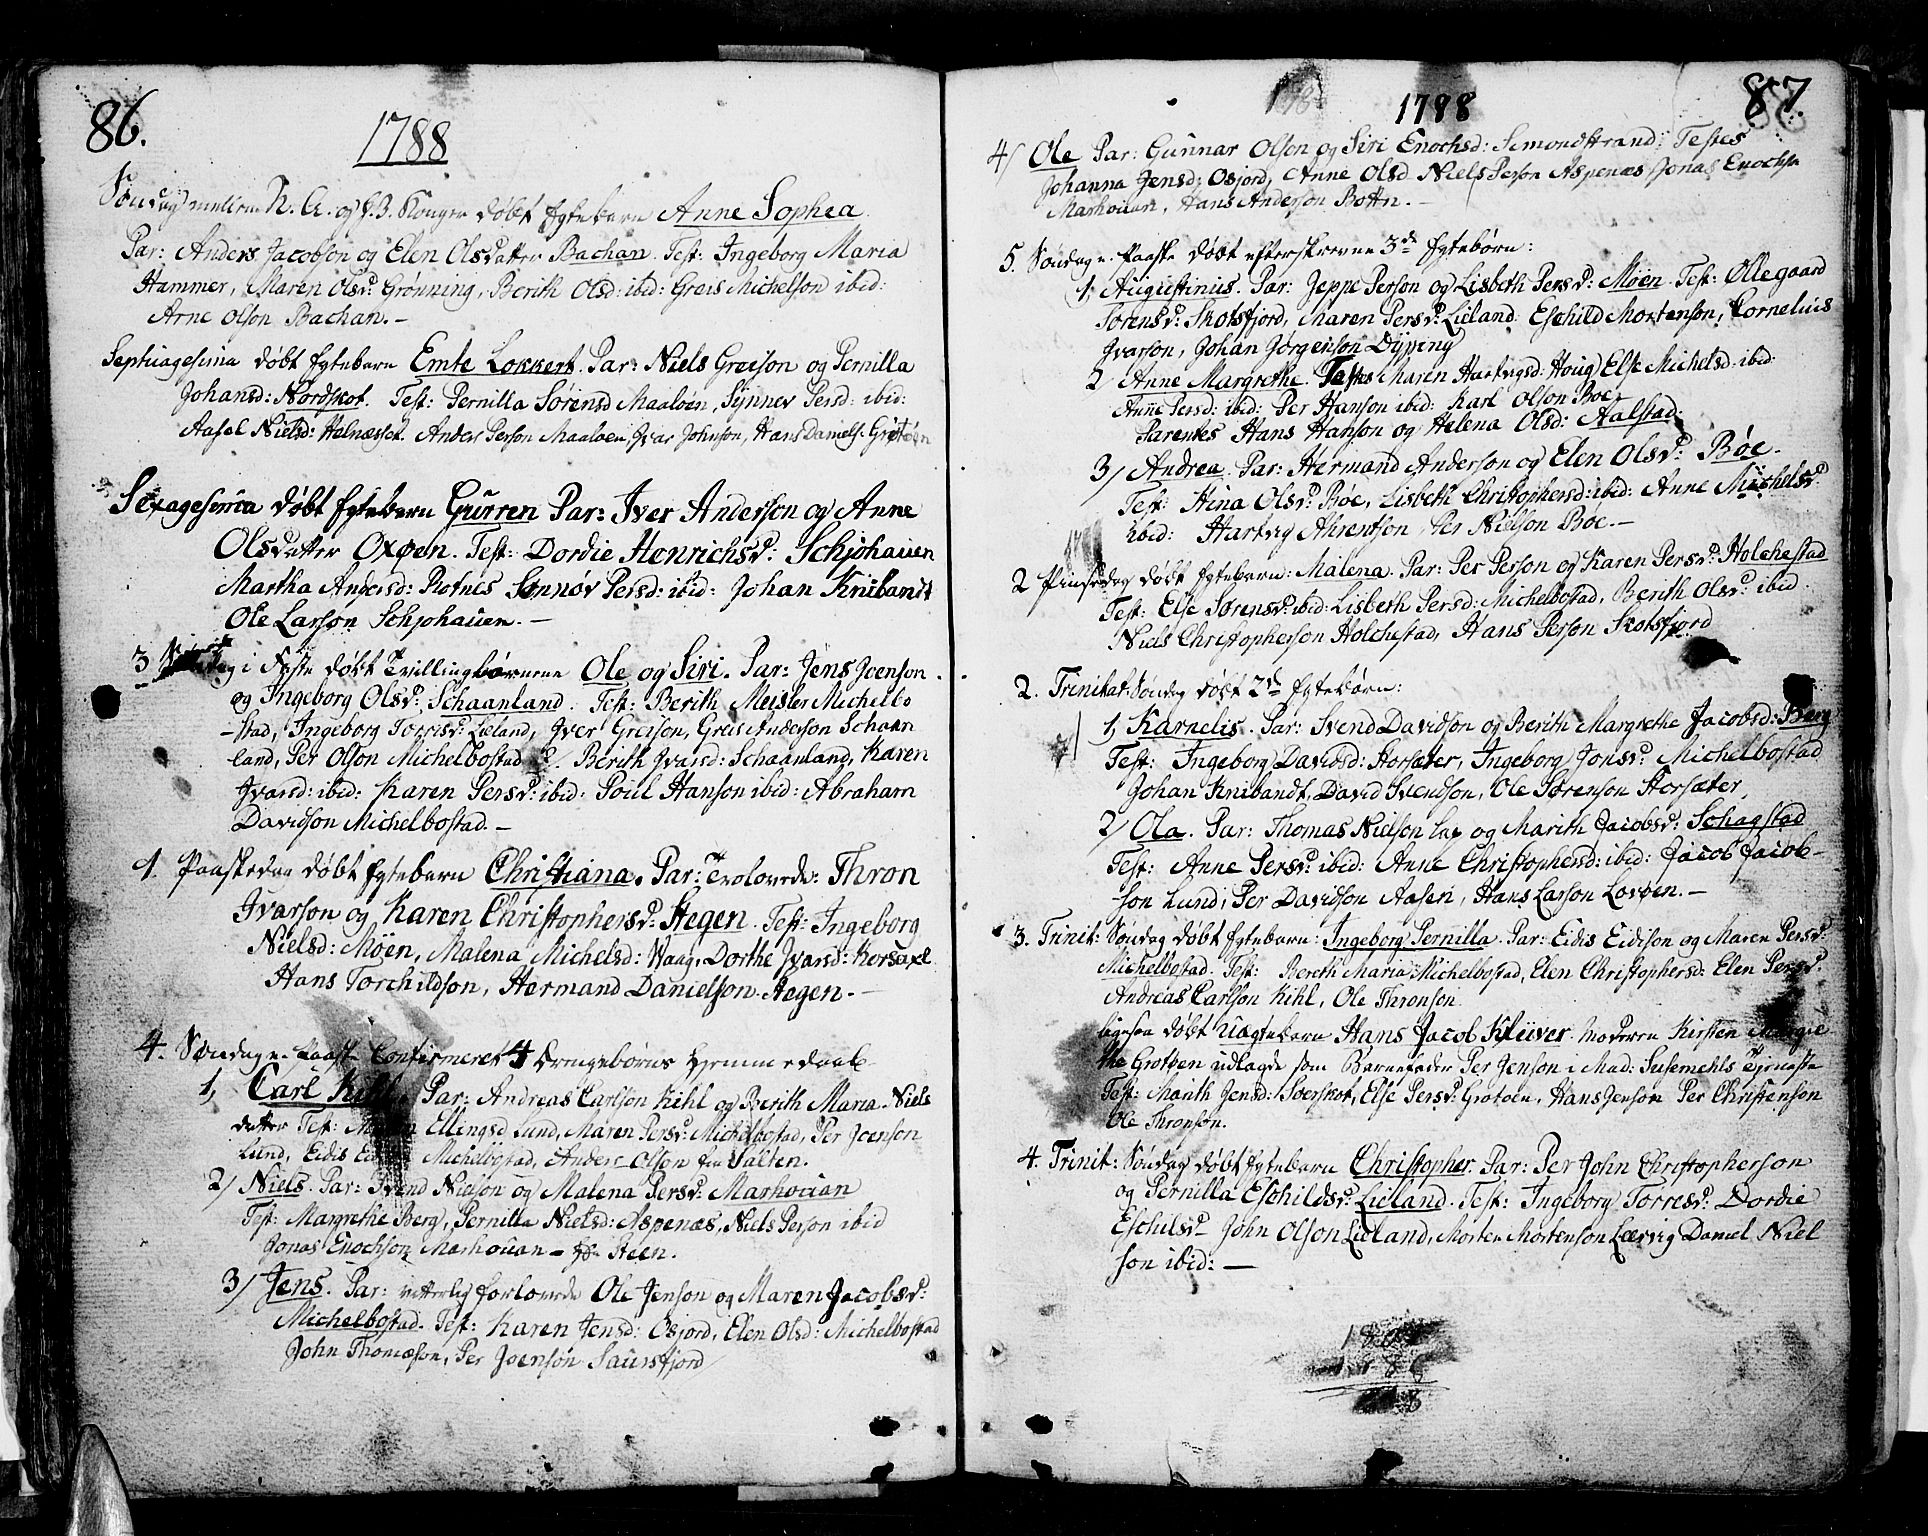 86.
1788
Søndag mellem N. A. og H. 3. Konger døbt Egtebarn Anne Sophea.
Par: Anders Jacobson og Elen Olsdatter Bachan. Test: Ingeborg Maria
Hammer, Maren Olsd: Grønning, Berith Olsd: ibid: Greis Michelson ibid:
Arne Olson Bachan.-
Septuagesima døbt Egtebarn Emte Lokkert. Par: Niels Greison og Pernilla
Johansd: Nordskot. Test: Pernilla Sørensd Maaløen, Synnev Persd: ibid:
Aasel Nielsd: Helnæsset. Anders Person Maaløen, Ivar Johnson, Hans Daniels. Grøtøen
Sexagesima døbt Egtebarn Gurren Par: Iver Anderson og Anne
Olsdatter Oxøen. Test: Dordie Henrichsd: Schjohauen
Martha Andersd: Rotnes Sønnøv Persd: ibid: Johan Knibandt
Ole Larson Schjohauen.-
3 Søndag i Faste døbt Tvillingbørnene Ole og Siri. Par: Jens Joenson
og Ingeborg Olsd: Schaanland. Test: Berith Meisler Michelbo
-stad, Ingeborg Torrisd: Lieland, Iver Greison, Greis Anderson Schaan
land, Per Olson Michelbostad 2/ Berith Ivarsd: Schaanland, Karen
Ivarsd: ibid: Karen Persd: ibid: Poul Hanson ibid: Abraham
Davidson Michelbostad.-
1. Paaskedag døbt Egtebarn Christiana. Par: Trolovede: Thron
Ivarson og Karen Christophersd: Hegen. Test: Ingeborg
Nielsd: Møen, Malena Michelsd: Vaag, Dorthe Ivarsd: Korsæxel
Hans Torchildson, Hermand Danielson Hegen.-
4. Søndag e. Paask Confirmeret 4 Drengebørns Hjemmedaab
1, Carl Kihl. Par: Andreas Carlson Kihl og Berith Maria Niels
datter Test: Ellengsd Lund, Maren Persd: Michelbostad, Per Joenson
Lund, Eidis Michelbostad, Anders Olson fra Salten.
2/ Niels. Par: Svend Nielson og Malena Persd: Marhouan
Test: Margrethe Berg, Pernilla Nielsd: Aspenæs, Niels Person ibid
Jonas Enochson Marhouan - Hr: Steen.
3/ Jens. Par: vitterlig forlovede Ole Jenson og Maren Jacobsd:
Michelbostad. Test: Karen Jensd: Osjord, Elen Olsd: Michelbostad
John Thomæson, Per Joenson Saursfjord
87.
1788
4/ Ole Par: Gunnar Olson og Siri Enochsd: Semondstrand; Testes
Johanna Jensd: Osjord, Anne Olsd Niels Person Aspenæs Jonas Enochsn
Marhouan, Hans Anderson Bottn.-
5. Søndag e. Paaske døbt efterskrevne 3de Egtebørn:
1, Augustinus. Par: Jeppe Person og Lisbeth Persd: Møen. Test: Ollegaard
Sørensd: Skotsfjord, Maren Persd: Lieland Eschild Mortenson, Cornelius
Ivarson, Johan Jørgenson Dyping
2 Anne Margrethe. Testes Maren Hartvigsd: Houg Else Michelsd: ibid:
Anne Persd: ibid: Per Hanson ibid: Karl Olson Boe
Parentes Hans Hanson og Helena Olsd: Aalstad:
3/ Andrea. Par: Hermand Anderson og Elen Olsd: Bøe.
Test: Hina Olsd: Bøe, Lisbeth Christophersd: ibid: Anne Michelsd:
ibid: Hartvig Ahrentson, Per Nielson Bøe.-
2 Pinsedag døbt Egtebarn: Malena. Par: Per Person og Karen Persd: Holchestad
Test: Else Sørensd: ibid: Lisbeth Persd: Michelbostad, Berith Olsd: ibid:
Niels Christopherson Holchestad, Hans Person Skotsfjord
2. Trinitat: Søndag døbt 2de Egtebørn:
1, Karnelis. Par: Svend Davidson og Berith Margrethe Jacobsd: Berg
Test: Ingeborg Davidsd: Horsæter, Ingeborg Jonsd: Michelbostad
Johan Knibandt, David Svendson, Ole Sørenson Horsæter
2/ Ola. Par: Thomas Nielson Lap og Marith Jacobsd: Schagstad
Test: Anne Persd: ibid: Anne Christophersd: ibid: Jacob Jacob-
son Lund, Per Davidson Aasen, Hans Larson Løvøen.-
3. Trinit: Søndag døbt Egtebarn: Ingeborg Pernilla. Par: Eidis Eidison og Maren Persd:
Michelbostad. Test: Bereth Maria Michelbostad, Elen Christophersd: Elen Persd:
Andreas Carlson Kihl, Ole Thronson
ligesaa døbt Uægtebarn Hans Jacob Klüver. Moderen Kirsten Margre
the Grotøen udlagde som Barnefader Per Jenson i Mad: Susemehls Tjeneste
Test: Marith Jensd: Sverskot, Else Persd: Grotøen, Hans Jenson Per Christenson
Ole Thronson.
4. Trinit: Søndag døbt Egtebarn Christopher. Par: Per John Christopherson
og Pernilla Eschildsd: Lieland. Test: Ingeborg Torresd: Dordie
Eschilsd: John Olson Lieland, Morten Mortenson Lærvig Daniel Niel
son ibid: -